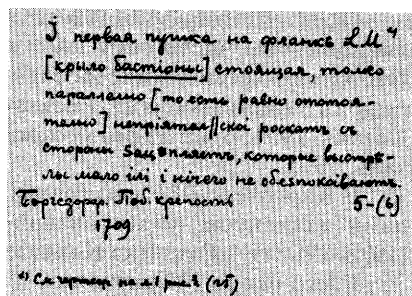 Ĭ первая пушка на фланкѣ LM ч
[крыло бастіоны] стоящая, толко
параллално [то есть равно отстоя-
телно] непріятел||скоі роскатъ съ
стороны зацѣпляетъ, которые выстрѣ-
лы мало ілі і нічего не обезпокаіваютъ.
Боргсдорф. Поб. крепость 5-(6)
1709
См чертеж на л 1 рис 2